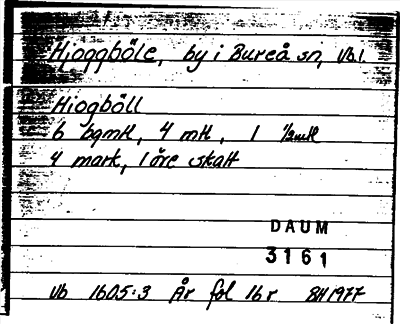 Hjoggböle, by i Bureå sn, Vb l.
Hiogböll
6 bgmtl, 4 mtl, 1 ½mtl
4 mark, 1 öre skatt
DAUM
3161
Vb 1605:3 År fol 16 r BH 1977